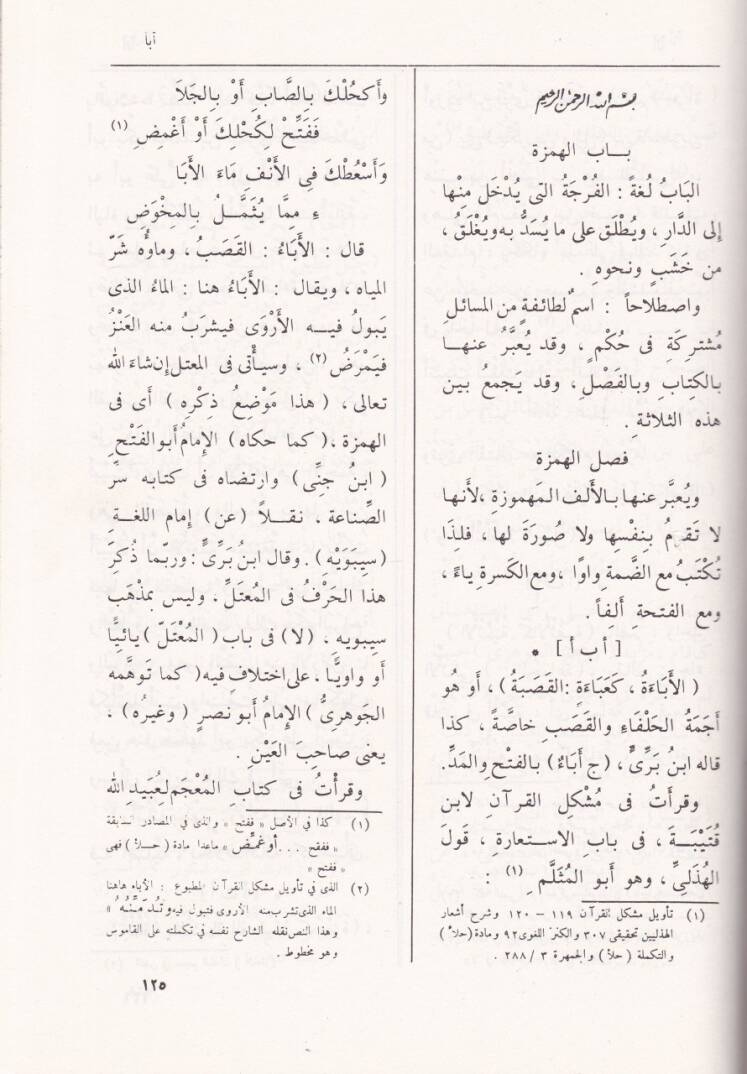 أبأ
بسم الله الرحمن الرحيم
بـاب الهمزة
البَابُ لُغةً : الفُرْجَةُ التى يُدْخَل مِنْها
إلى الدَّارِ ، ويُطْلَق على ما يُسَدُّ به ويُغْلَقُ ،
من خَشَبٍ ونحوِهِ .
واصطلاحاً : اسمٌ لطائفةٍ من المسائل
مُشتركةٍ فى حُكْمٍ ، وقد يُعبَّرُ عنهـا
بالكتابِ وبالفَصْلِ ، وقد يَجمعُ بين
هذه الثلاثةِ .
فصل الهمزة
ويُعبَر عنها بـالألف المَهموزةِ ،لأنهـا
لا تَقومُ بِنفْسِها ولا صُورَةَ لها ، فلِذَا
تُكْتَبُ مع الضَّمة واوًا ، ومع الكَسرة ياءً ،
ومع الفتحةِ أَلِفاً .
[ أ ب أ ] *
( الأَبَاءَةُ ، كَعَبَاءَةٍ :القَصَبَةُ ) ، أَو هُو
أَجَمَةُ الحَلْفَاءِ والقَصَبِ خاصَّةً ، كذا
قاله ابنُ بَرِّىٍّ ، (ج أَبَاءٌ) بالفَتْح والمَدِّ .
وقرأَتُ فى مُشْكِلِ القرآنِ لابن
قُتَيْبَــةَ ، فى بابِ الاستعارةِ ، قَولَ
الهُذَلىِّ ، وهو أَبو المُثَلَّم (١) :
(١) تأويل مشكل القرآن ١١٩ - ١٢٠ وشرح أشعار
الهذليين تحقيقى ٣٠٧ والكنز اللغوى ٩٢ ومادة (حلأ )
والتكملة ( حلأ) والجمهرة ٣ / ٢٨٨ .
وأَكحُلْكَ بِالصَّابِ أَوْ بِالجَلَا
فَفَتِّحْ لِكُحْلِكَ أَوْ أَغْمِضِ (١)
وَأَسْعُطْكَ فِى الأَنْفِ مَاءَ الأَبَا
ءِ مِمَّا يُثَمَّـلُ بِالمِخْوَضِ
قال : الأَبَاءُ : القَصَبُ ، وماؤُه شَرّ
المياه ، ويقال : الأَبَاءُ هنا : الماءُ الذى
يَبولُ فيـه الأَرْوَى فيشرَبُ منه العَنْزُ
فيَمْرَضُ (٢) ، وسيأْتى فى المعتل إن شاءَ الله
تعالى ، ( هذا مَوْضِعُ ذِكْرِه ) أَى فى
الهمزة ، (كما حكاه) الإِمامُ أَبو الفَتْحِ
( ابنُ جِنِّى ) وارتضاه فى كتابه سرِّ
الصِّناعة ، نقـلاً (عن) إِمام اللغـة
(سيبَوَيْهِ) . وقال ابنُ بَرِّىٍّ : وربّما ذُكِرَ
هذا الحَرْفُ فى المُعتَلِّ ، وليس بمذْهَب
سيبويهِ ، (لا) فى باب (المُعْتَلّ ) يائيًّا
أَو واويًّا ، على اختلافٍ فيه (كما تَوهَّمه
الجَوهَرِىُّ ) الإِمامُ أَبو نصرٍ ( وغيرُه ) ،
يعنى صاحِبَ العَيْنِ .
وقرأْتُ فى كتابِ المُعْجَم لعُبَيدِ الله
(١) كذا في الأصل « ففتح » والذى في المصادر السابقة
« ففقح ... أو غمِّض » ماعدا مادة (حلأ) فهى
« ففتح »
(٢) الذى في تأويل مشكل القرآن المطبوع : الأباء هاهنا
الماء الذى تشرب منه الأروى فتبول فيه وتُدَمِّنُهُ »
وهذا النص نقله الشارح نفسه في تكملته على القاموس
وهو مخطوط .
١٢٥